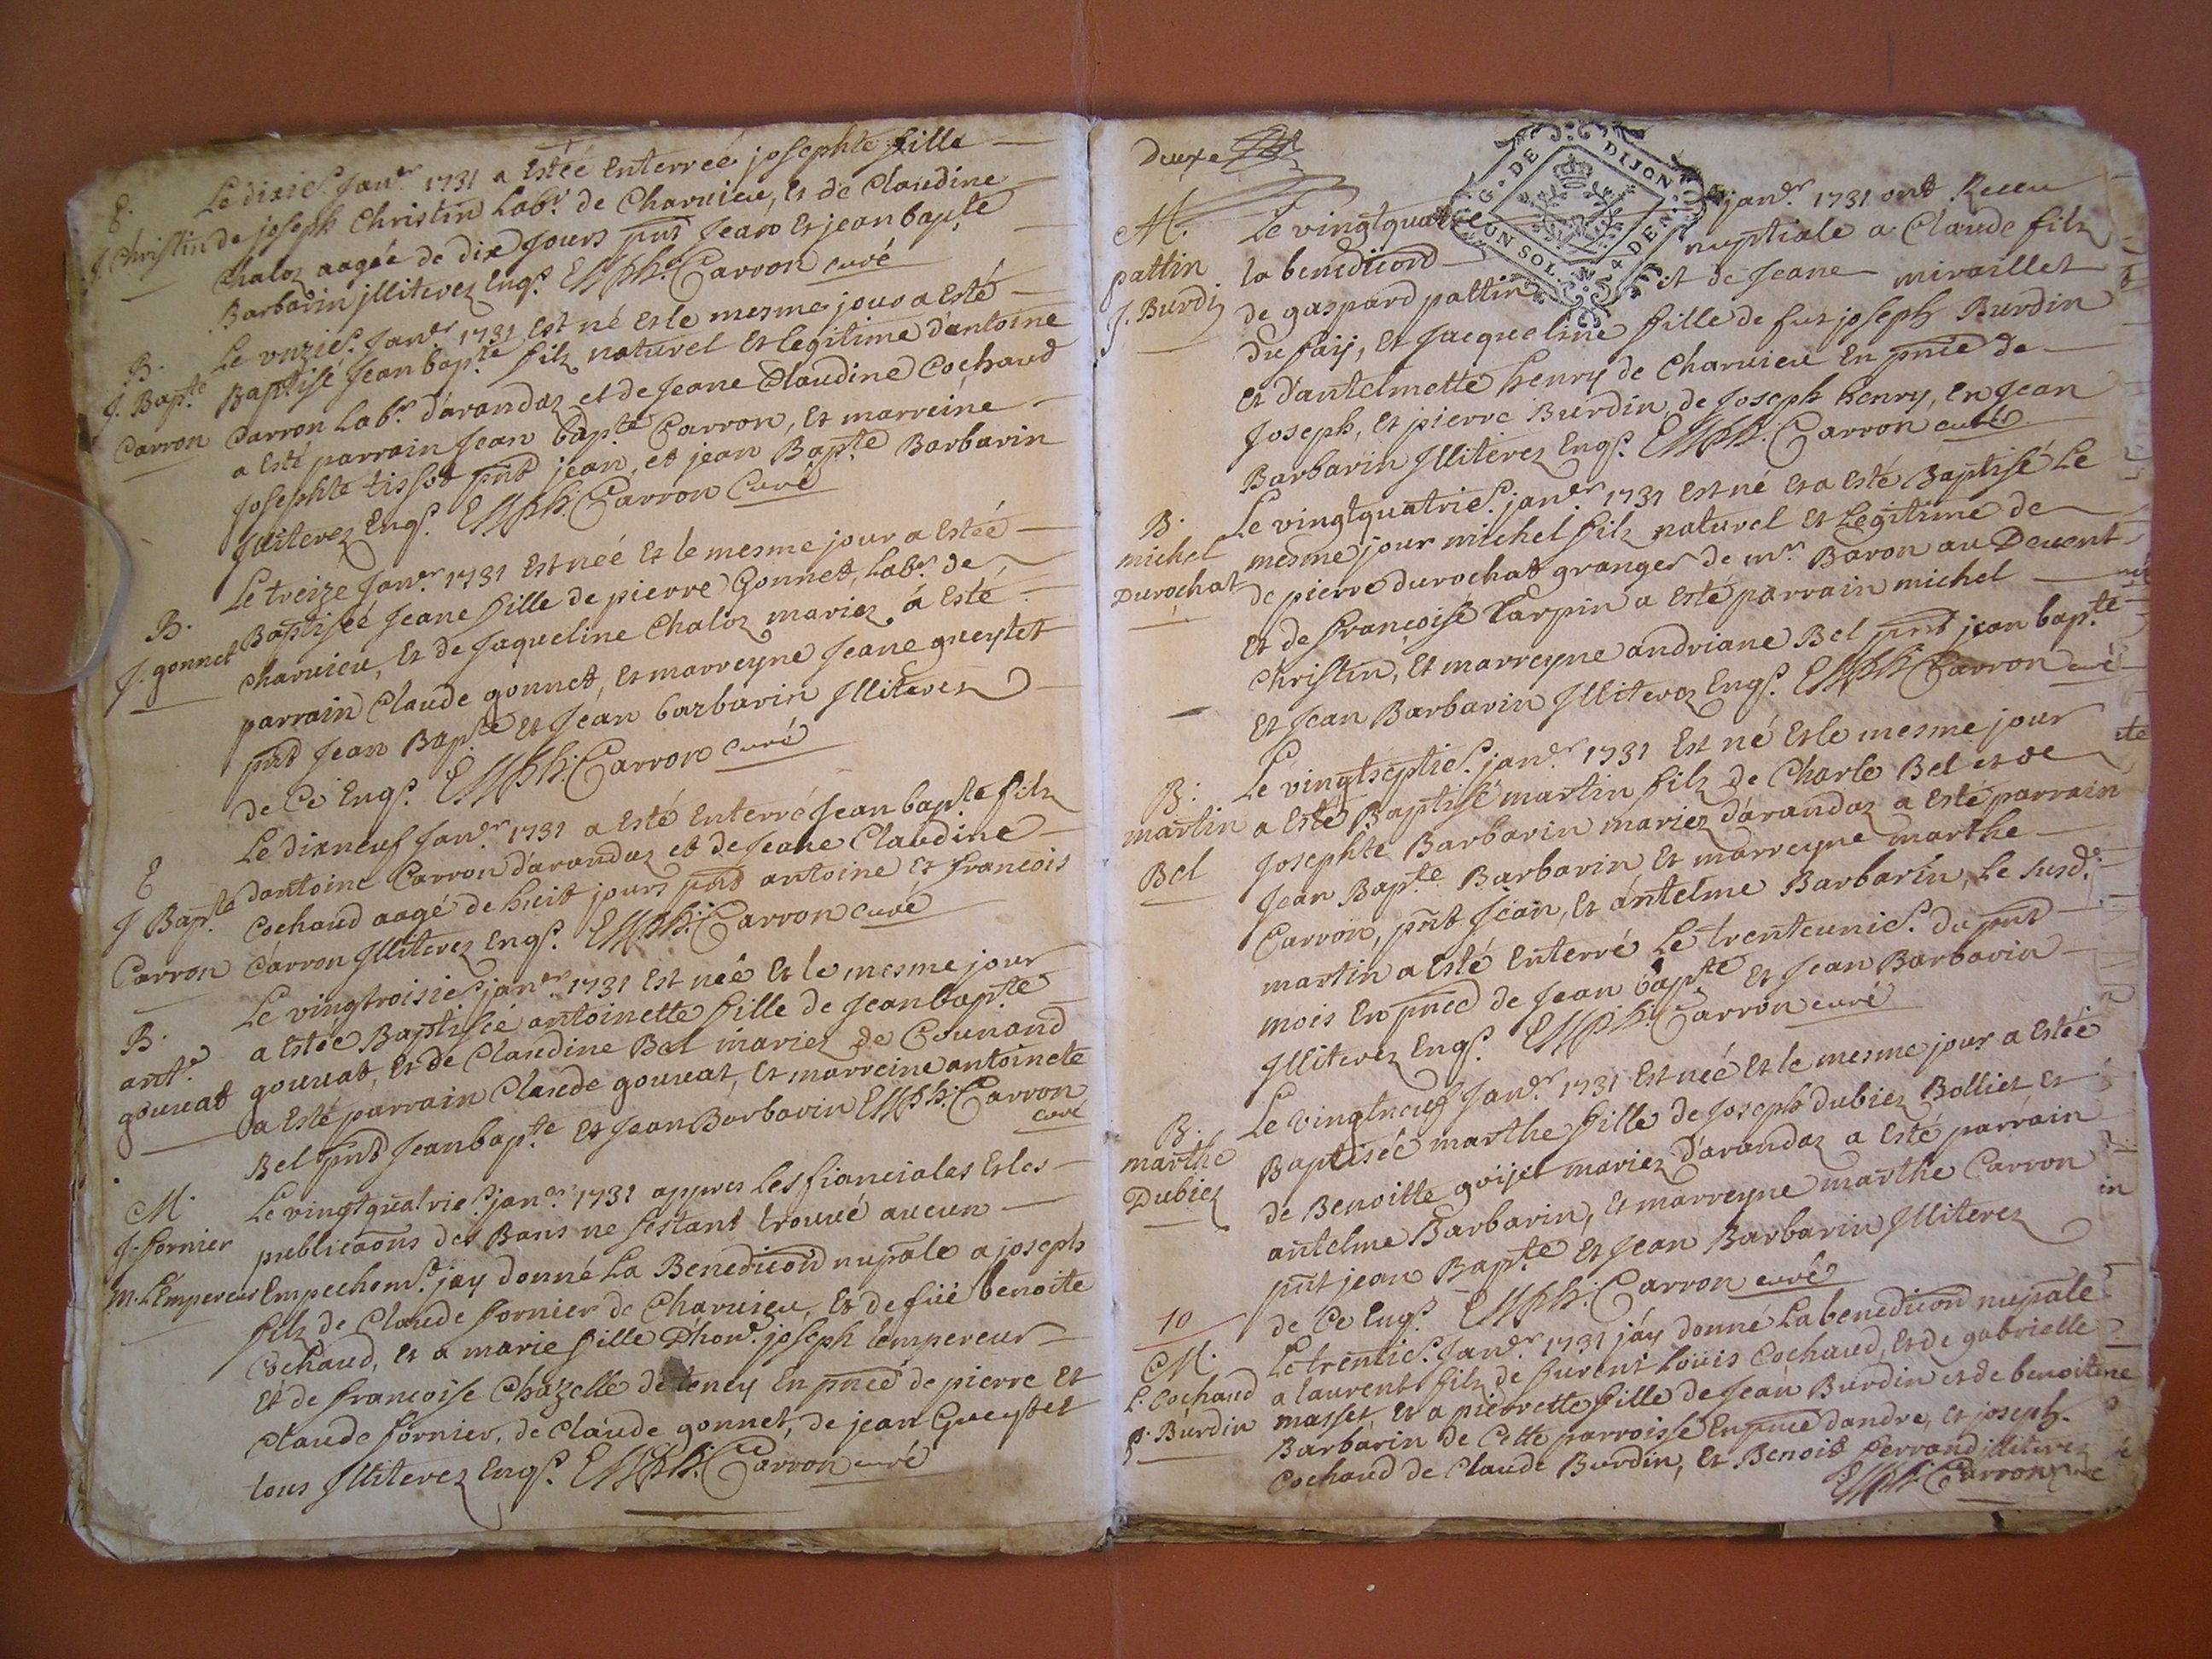 E.
J. Christin
Le dixie.^ Jan.er 1731 a Estéé Enterreé josephte fille
de joseph Christin Lab.r de Charuieu, Et de Claudine
Chaloz aagée de dix Jours pnt Jean Et jean bap.te
Barbarin jlliterez Enq.s Carron curé
B.
J. Bap.te
Carron
Le vnzie. Jan.er 1731 Est né Et le mesme jour a Esté
Baptisé Jean bap.te filz naturel Et legitime d'antoine
Carron Lab.r d'arandaz et de Jeane Claudine Cochaud
a Esté parrain Jean bap.te Carron, Et marreine
Josephte tissot pnt jean, et jean Bap.te Barbarin
Jlliterez Enq.s Carron Curé
B.
J. gonnet
Le treize Jan.er 1731 Est néé Et le mesme jour a Estéé
Baptiséé Jeane fille de pierre Gonnet, Lab.r de
charuieu, Et de Jaqueline Chaloz mariez a Esté
parrain Claude gonnet, Et marreyne Jeane gueytet
pnt Jean Bap.te Et Jean barbarin Jlliterez
de Ce Enq.s Carron Curé
E
J Bap.te
Carron
Le dixneuf Jan.er 1731 a Esté Enterré Jean bap.te filz
d'antoine Carron d'arandaz et de Jeane Claudine
Cochaud aagé de huit jours pnt antoine Et francois
Carron Jlliterez Enq.s Carron Curé
B.
ant.e
gouuat
Le vingtroisie. jan.er 1731 Est néé Et le mesme jour
a Estée Baptiséé antoinette fille de Jean bap.te
gouuat, Et de Claudine Bel mariez de Counand
a Esté parrain Claude gouuat, Et marreine antoinete
Bel pnt Jean bap.te Et Jean Barbarin Carron
curé
M.
J. fornier
M. L'Empereur
Le vingtquatrie. jan.er 1731 appres Les fianciales Et les
publicaons des Bans ne s'estant trouué aucun
Empechem.t jay donné La Benedicion nupale a joseph
filz de Claude fornier de Charuieu, Et de füe benoite
Cochaud, Et a marie fille D'hon.e joseph lempereur
Et de francoise Chazelle de teney En pnce de pierre Et
Claude fornier, de Claude gonnet, de jean Gueytet
tous Jlliterez Enq.s Carron curé
deuxe
G. DE DIJON
UN SOL. 4 DEN.
M.
pattin
J. Burdin
Le vingtquatre jan.er 1731 ont Receu
la benediciond nuptiale a Claude filz
de gaspard pattin Et de Jeane miraillet
du faij, Et Jacqueline fille de fut joseph Burdin
Et d'antelmette henry de Charuieu En pnce de
Joseph, Et pierre Burdin, de Joseph henry, En Jean
Barbarin Jlliterez Enq.s Carron curé
B.
michel
Durochat
Le vingtquatrie. jan.er 1731 Est né Et a Esté Baptisé Le
mesme jour michel filz naturel Et Legitime de
de pierre durochat granger de m.r Baron au Deuent
Et de françoise Carpin a Esté parrain michel
Christin, Et marreyne andriane Bel pnt jean bap.te
Et Jean Barbarin Jlliterez Enq.s Carron curé
B.
martin
Bel
Le vingtseptie. jan.er 1731 Est né Et le mesme jour
a Esté Baptisé martin filz de Charle Bel et de
Josephte Barbarin mariez d'arandaz a Esté parrain
Jean Bap.te Barbarin Et marreyne marthe
Carron, pnt Jean, Et antelme Barbarin, Le susd.
martin a Esté Enterré Le trenteunie. du pnt
mois En pnce de Jean bap.te Et Jean Barbarin
Jlliterez Enq.s Carron curé
B.
marthe
Dubiez
Le vingtneuf Jan.er 1731 Est néé Et le mesme jour a Estéé
Baptiséé marthe fille de Joseph dubiez Bolliet Et
de Benoitte goijet mariez d'arandaz a Esté parrain
antelme Barbarin, Et marreyne marthe Carron
pnt jean Bap.te Et Jean Barbarin Jlliterez
de Ce Enq.s Carron curé
10
M.
L. Cochaud
p. Burdin
Le trentie. Jan.er 1731 jáy donné La benedicion nupale
a laurent filz de furent Louis Cochaud, Et de gabrielle
masset, Et a pierrette fille de Jean Burdin et de benoitene
Barbarin de Cette parroisse En pnce d'andre, Et joseph
Cochaud de Claude Burdin, Et Benoit ferrand illiterez
Carron curé